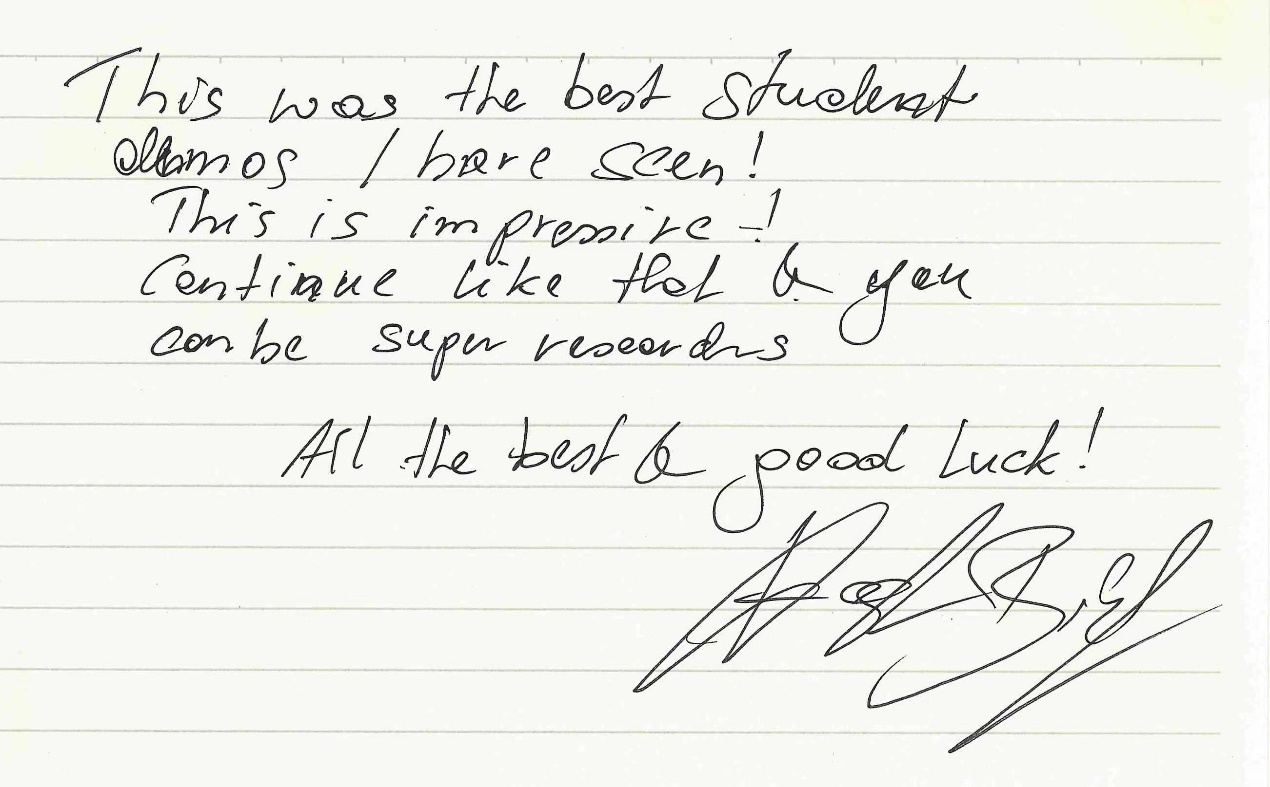 This was the best student
demos I have seen!
This is impressive!
Continue like that & you
can be super researchers
All the best & good luck!